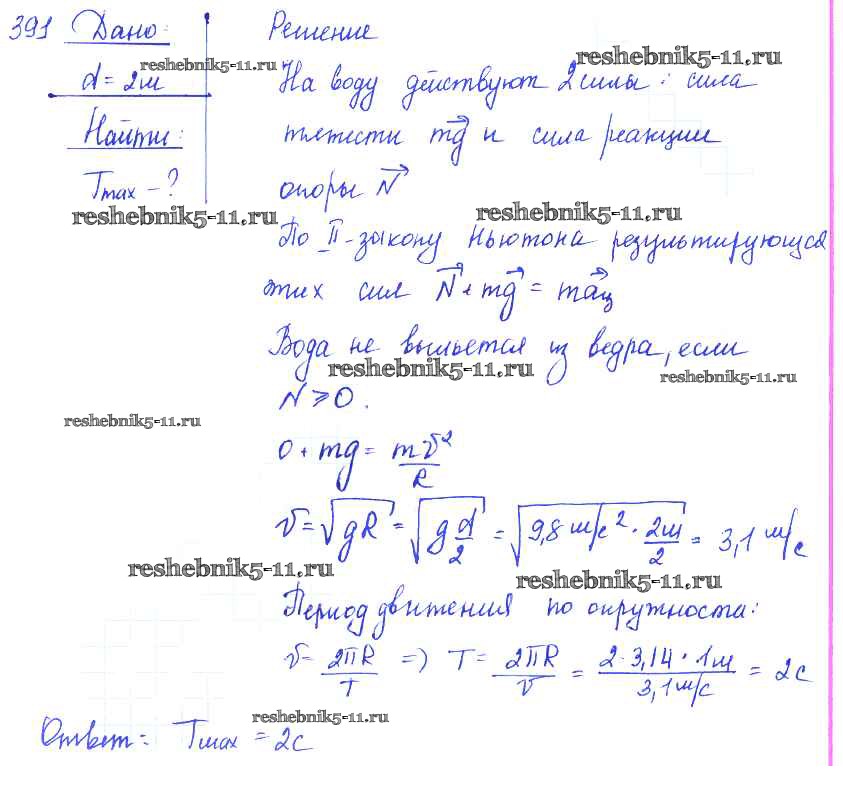 391 Дано: Решение
reshebnik5-11.ru reshebnik5-11.ru
d = 2м На воду действуют 2 силы: сила
Найти: тяжести mg⃗ и сила реакции
Tmax - ? опоры N⃗
reshebnik5-11.ru reshebnik5-11.ru
По II-закону Ньютона результирующая
этих сил N⃗ + mg⃗ = ma⃗ц
Вода не выльется из ведра, если
reshebnik5-11.ru reshebnik5-11.ru
N ⩾ 0.
reshebnik5-11.ru
0 + mg = mv²/R
v = √gR = √g d/2 = √9,8 м/с² · 2м/2 = 3,1 м/с
reshebnik5-11.ru reshebnik5-11.ru
Период движения по окружности:
v = 2πR/T => T = 2πR/v = 2·3,14·1м/3,1 м/с = 2с
reshebnik5-11.ru
Ответ: Tmax = 2с